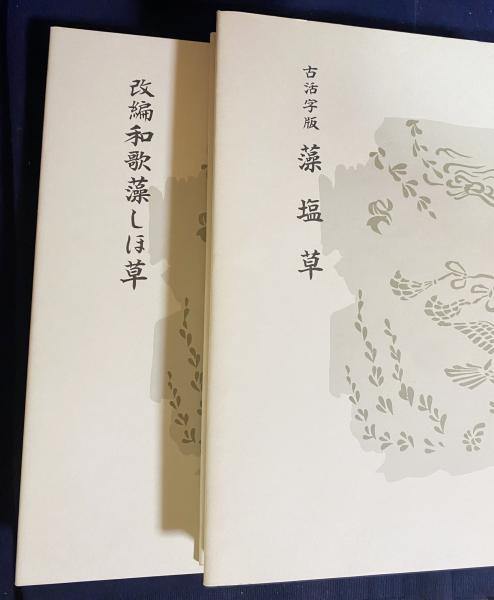 古活字版 藻塩草
改編和歌藻しほ草